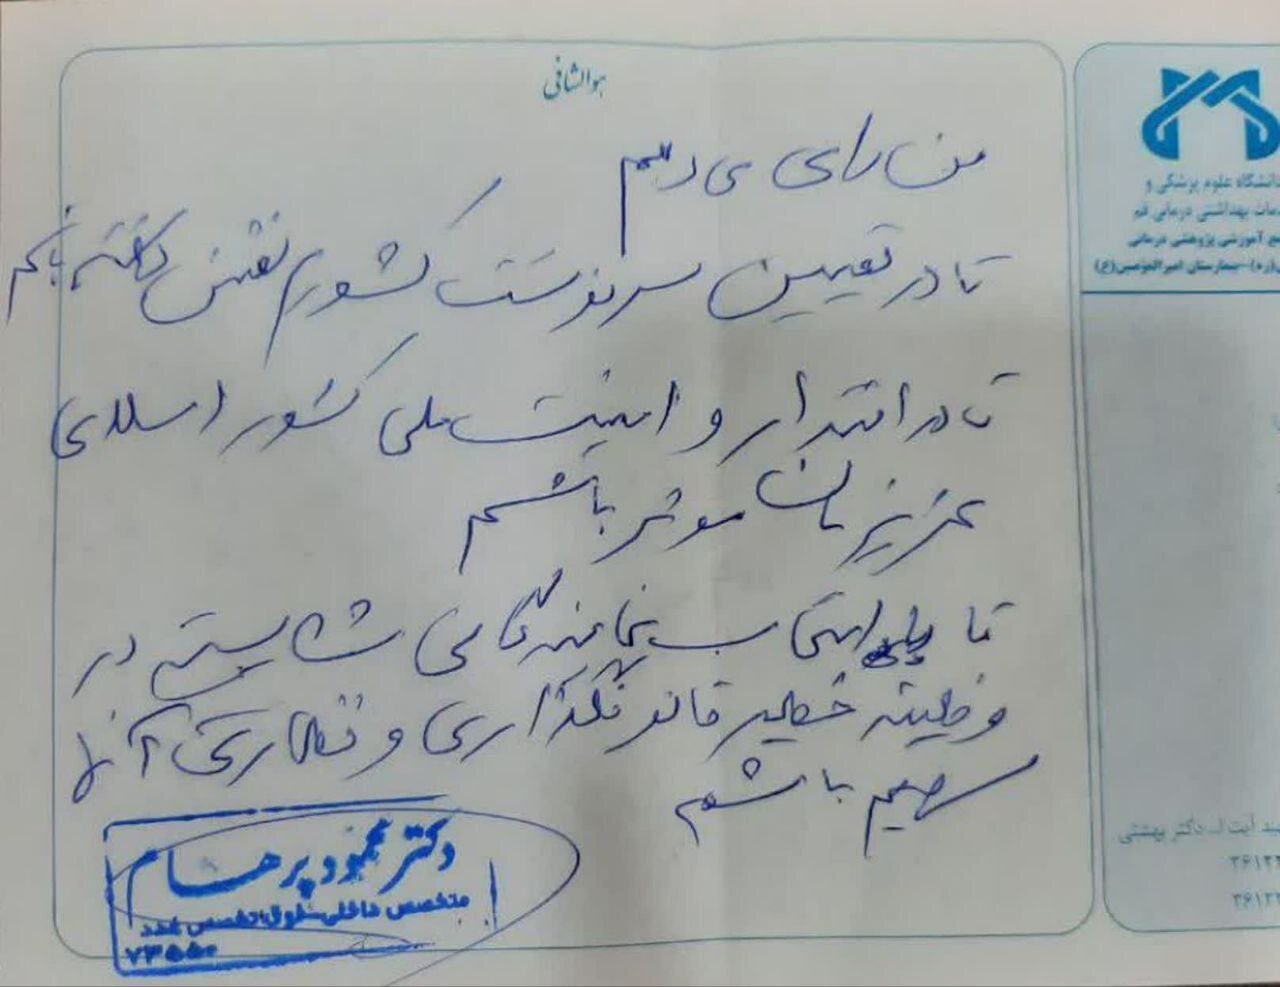 هوالشافی
من رای می دهم
تا در تعیین سرنوشت کشورم نقش داشته باشم
تا در اقتدار و امنیت ملی کشور اسلامی
عزیزمان موثر باشم
تا با انتخاب نمایندگانی شایسته در
وظیفه خطیر قانونگذاری و نظارتی آنها
سهیم باشم
دکتر محمود پرهام
متخصص داخلی-فوق تخصص غدد
۷۳۵۵۰
دانشگاه علوم پزشکی و
خدمات بهداشتی درمانی قم
آموزشی پژوهشی درمانی
بیمارستان امیرالمومنین(ع)
آیت ا... دکتر بهشتی